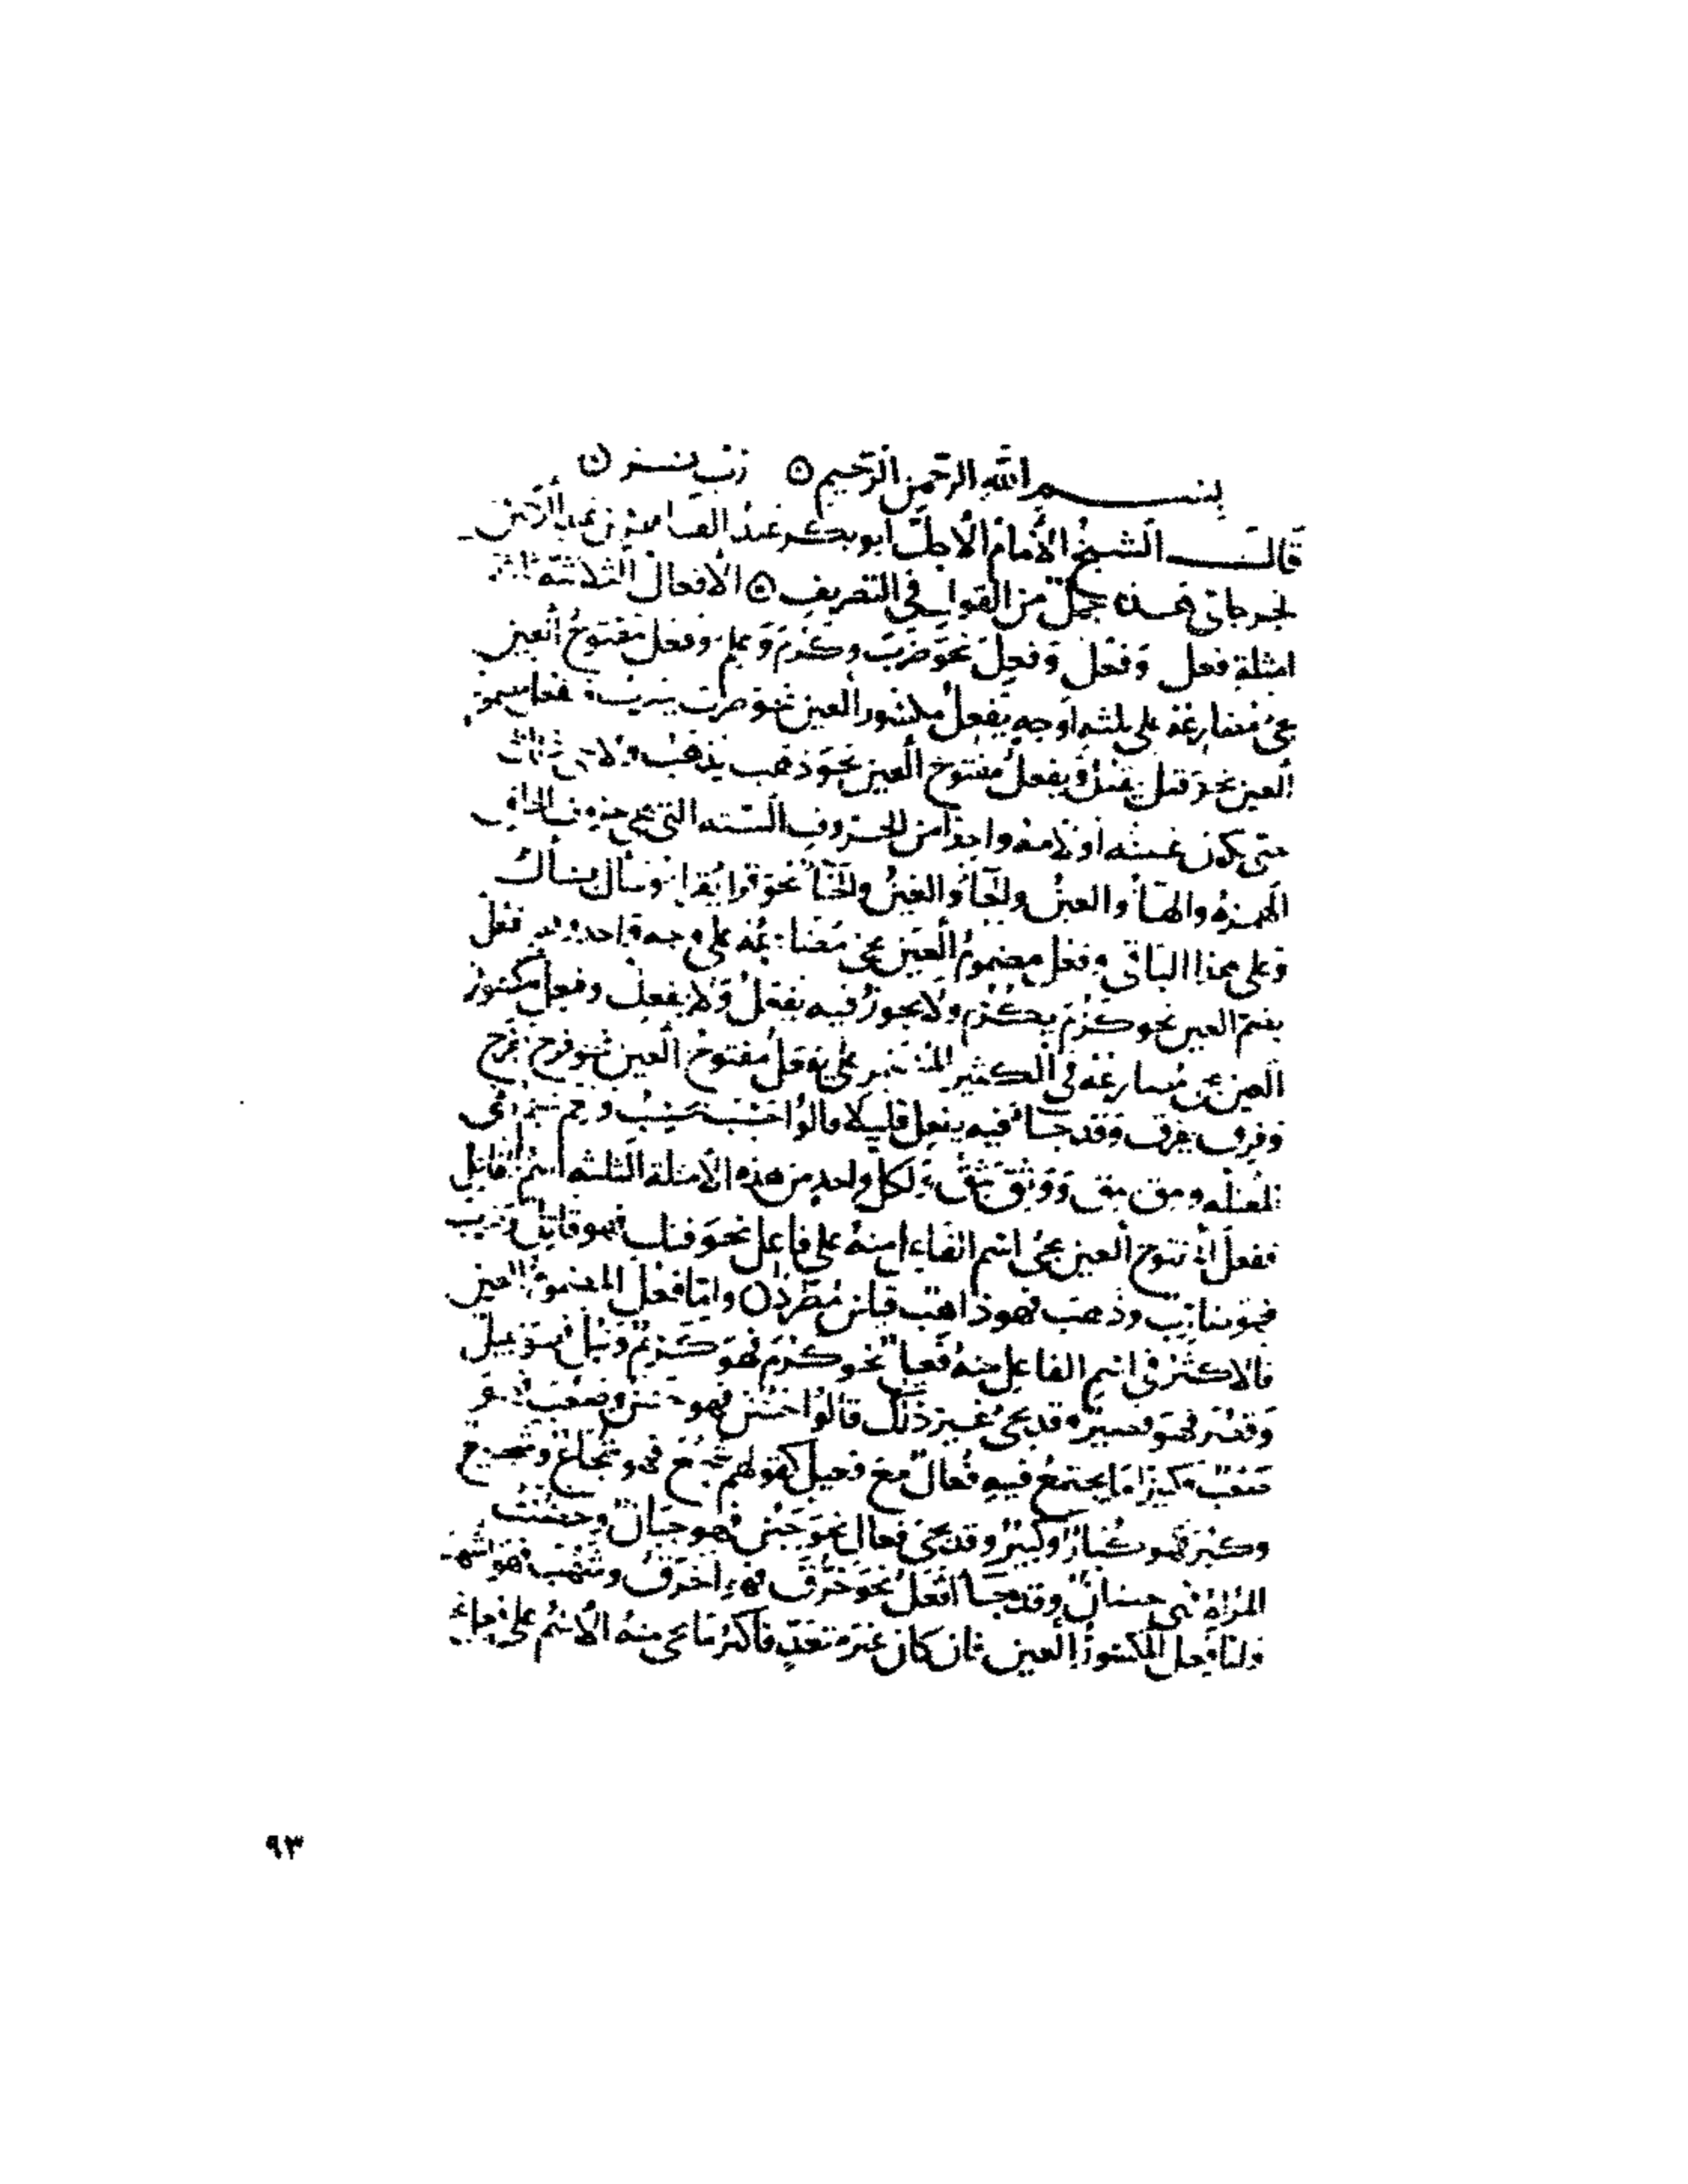 بسم الله الرحمن الرحيم ۞ رب يسر
قال الشيخ الإمام الأجل أبو بكر عبد القاهر بن عبد الرحمن
الجرجاني هذه جمل من القول في التصريف ۞ الأفعال الثلاثية
امثلة فعل وَفَعُلَ وَفَعِلَ نحو ضرَبَ وكَرُمَ وَعَلِمَ وفعل مفتوح العين
يجئ مضارعُه على ثلثه اوجهٍ يَفعِلُ مكسور العين نحو ضرب يضرب ويفعل مضموم
العين نحو قتل يقتل ويفعل مفتوح العين نحو ذهب يذهب ولا
حتى يكون عينه او لامه واحدا من الحروف السته التى هى حروف الحلق
الهمزة والهاء والعين والحاء والغين والخاء نحو قرا يقرا وسأل يسأل
وعلى هذا الباقى وفعل مضموم العين يجئ مضارعه على وجه واحد وهو يفعل
بضم العين نحو كرُمَ يكرُم ولا يجوز فيه يفعَلُ ولا يفعِل وفعِل مكسور
العين يجئ مضارعه فى الكثير على يفعل مفتوح العين نحو فرح يفرح
وفرِق يفرق وقد جاء فيه يفعِل قليلا قالوا حَسِبَ يحسِبُ وفى
المعتله ومِق يمق وَوَثِقَ يَثِق ولكل واحدٍ من هذه الأمثلة الثلثه اسم الفاعل
ففعل المفتوح العين يجئ اسم الفاعل منه على فاعل نحو قتل فهو قاتل وضرب
فهو ضارب وذهب فهو ذاهب قياس مُطّرد ن واما فعُل المضموم العين
فالاكثر فى اسم الفاعل منه فعيل نحو كرُمَ فهو كريم ونبُل فهو نبيل
وقصُر فهو قصير وقد يجئ غير ذلك قالوا حسُن فهو حسن وصعب فهو
صعب وكثيرا ما يجتمع فيه فُعال مع فعيل كقولهم شجُع فهو شجاع وشجيع
وكبر فهو كُبار وكبير وقد يجئ فعال نحو جبُن فهو جبان وحصنت
المرأة فهى حصان وقد جاء أفعل نحو خرُق فهو اخرق وشهب فهو اشهب
واما فعِل المكسور العين فان كان غير متعدٍ فأكثر ما يجئ منه الاسم على فعِل
٩٣